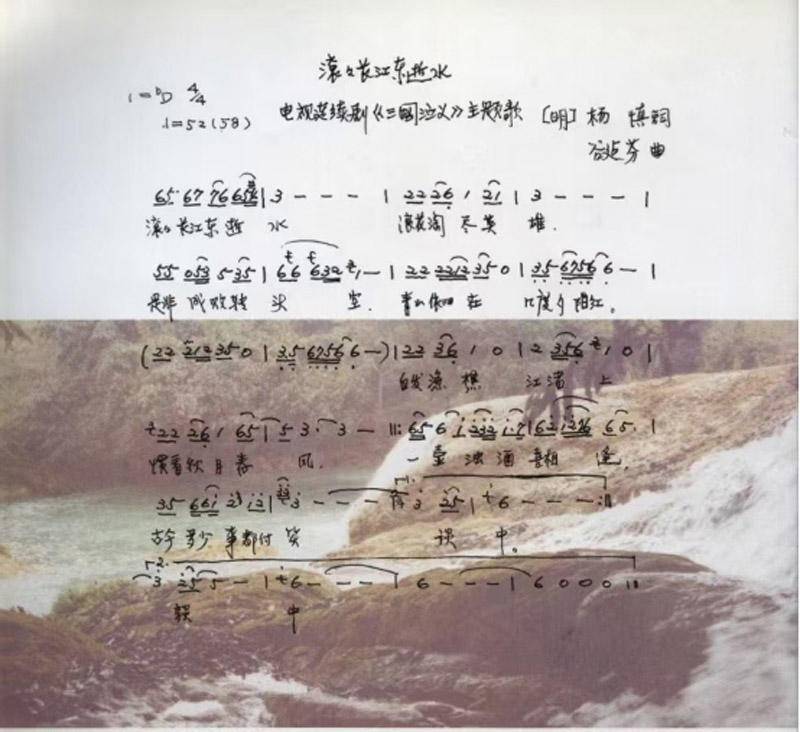 滚々长江东逝水
1=ᵇD 4/4
♩=52(58)
电视连续剧《三国演义》主题歌 [明] 杨慎词
谷建芬 曲
65· 67 76 656 | 3 - - - | 22 26 1 21 | 3 - - - |
滚々长江东逝 水 浪花淘 尽英 雄.
55 053 5 35 | 66 632 1 - | 22 2312 35 0 | 35 6756 6 - |
是非 成败转 头 空. 青山依旧 在 几度夕阳红。
(22 2312 35 0 | 35 6756 6 -) | 22 36 1 0 | 2 356 1 0 |
白发渔 樵 江渚 上
22 26 1 65 | 5 3· 3 - ‖: 65 6 1 232 1 7 | 62 1276 65· |
惯看秋月春 风. 一 壶 浊 酒 喜相 逢.
1.
35 661 2 12 | 3 - - - | 3 25 | 6 - - - :‖
古今 多少 事都付 笑 谈 中。
2.
3 25 5 - | 6 - - - | 6 - - - | 6 0 0 0 ‖
谈 中